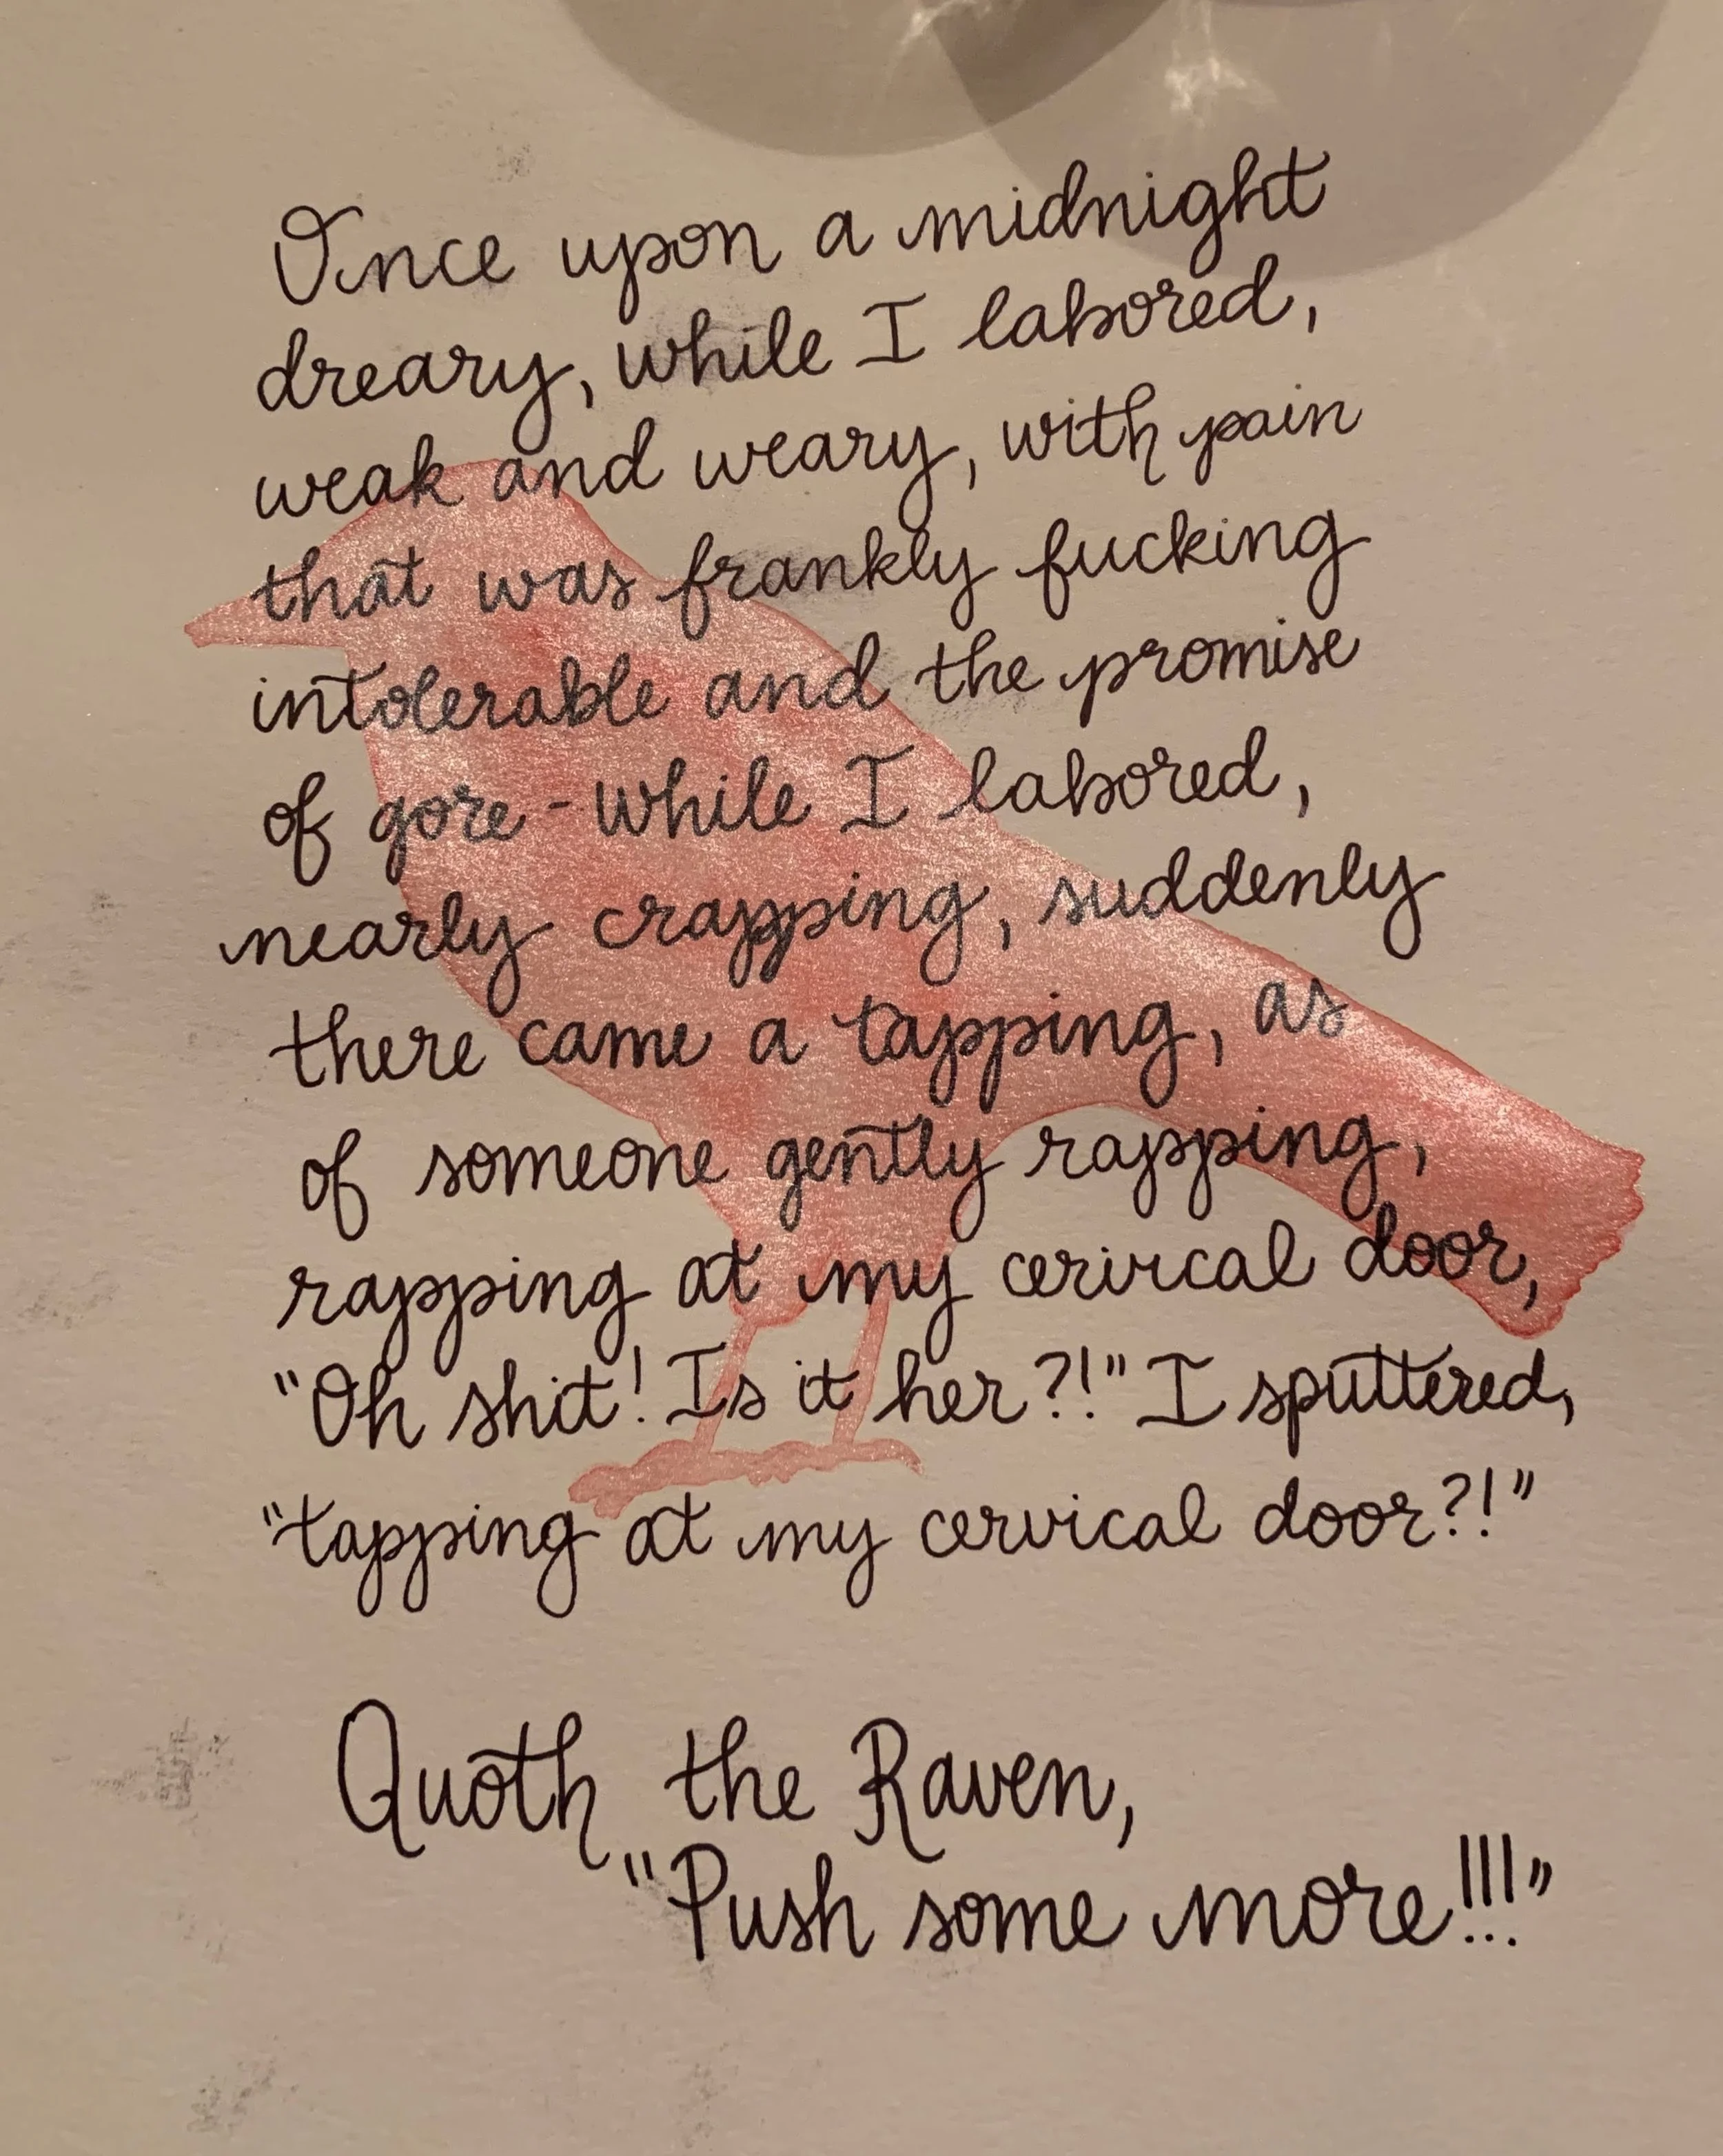 Once upon a midnight
dreary, while I labored,
weak and weary, with pain
that was frankly fucking
intolerable and the promise
of gore - while I labored,
nearly crapping, suddenly
there came a tapping, as
of someone gently rapping,
rapping at my cervical door,
"Oh shit! Is it her?!" I sputtered,
"tapping at my cervical door?!"
Quoth the Raven,
"Push some more!!!"